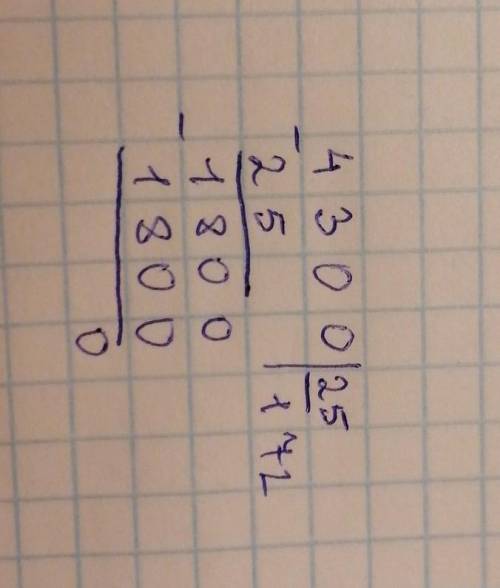 4300 | 25
- 25 172
1800
- 1800
0